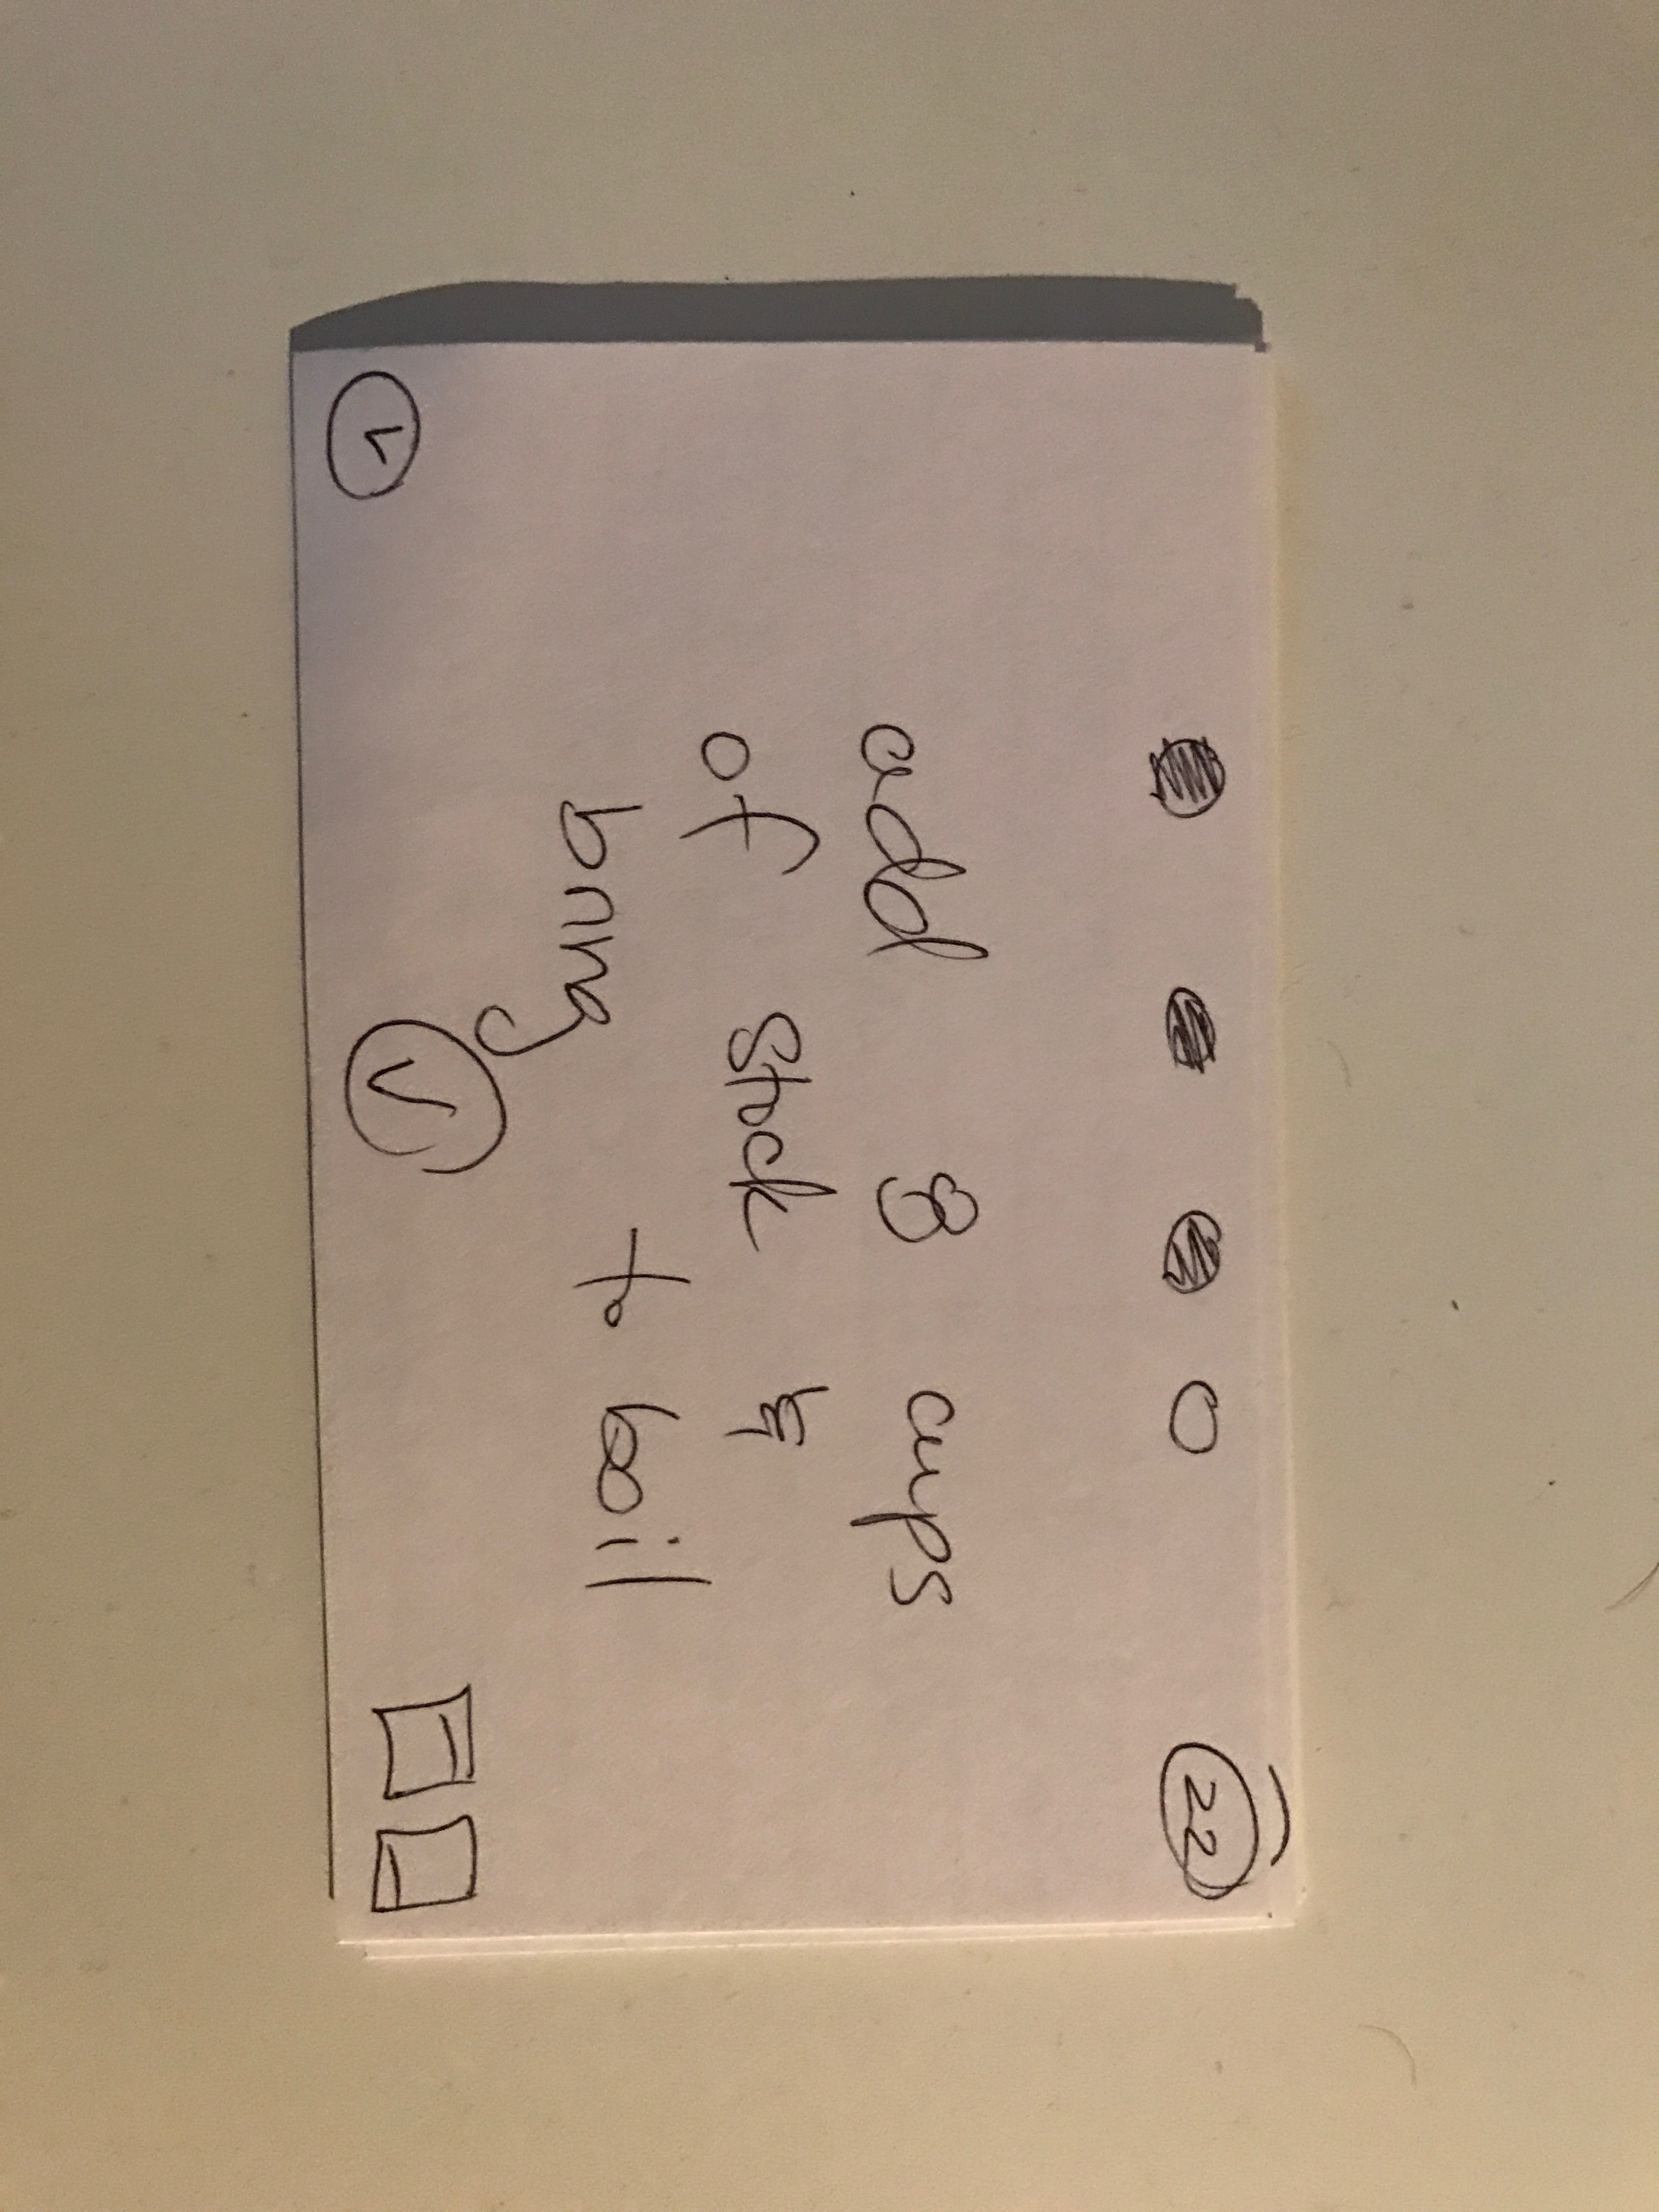 22
add 8 cups
of stock &
bring to boil